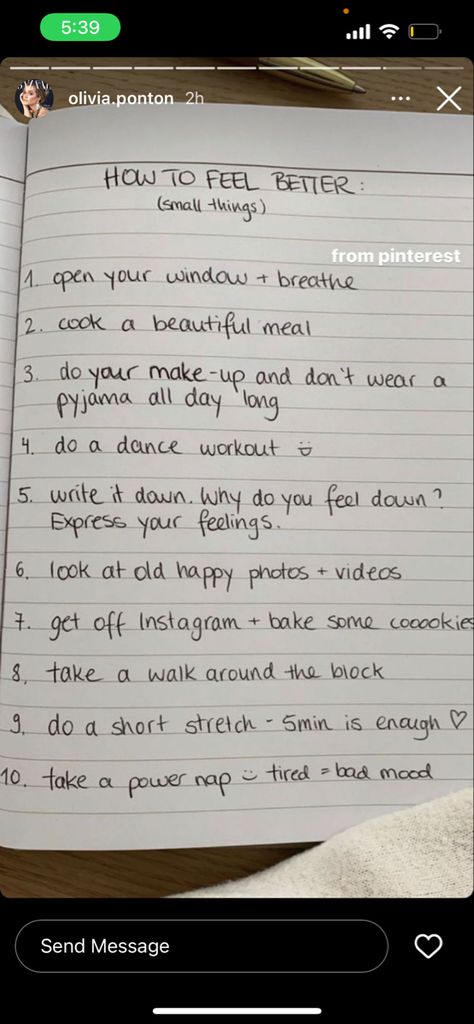 5:39
olivia.ponton 2h
HOW TO FEEL BETTER:
(small things)
from pinterest
1. open your window + breathe
2. cook a beautiful meal
3. do your make-up and don't wear a
pyjama all day long
4. do a dance workout
5. write it down. Why do you feel down?
Express your feelings.
6. look at old happy photos + videos
7. get off Instagram + bake some cooookies
8. take a walk around the block
9. do a short stretch - 5min is enough ♡
10. take a power nap tired = bad mood
Send Message